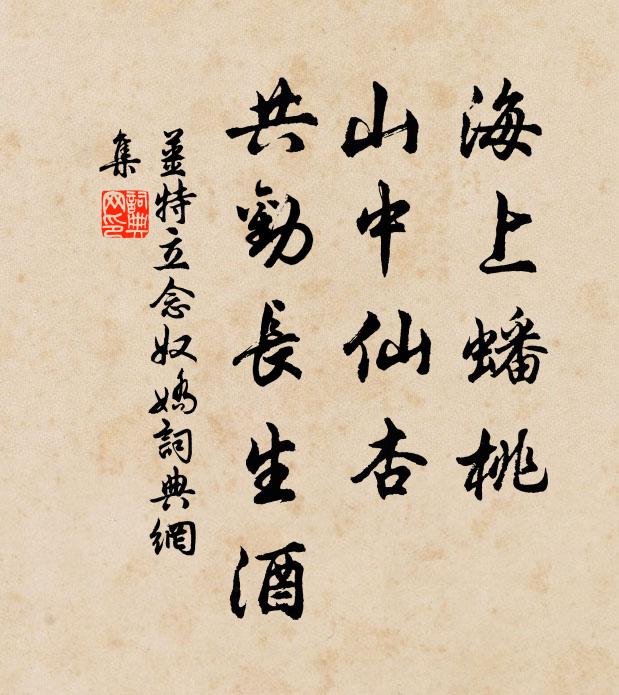 海上蟠桃
山中仙杏
共勸長生酒
姜特立念奴嬌詞典網
集
詞典
网印